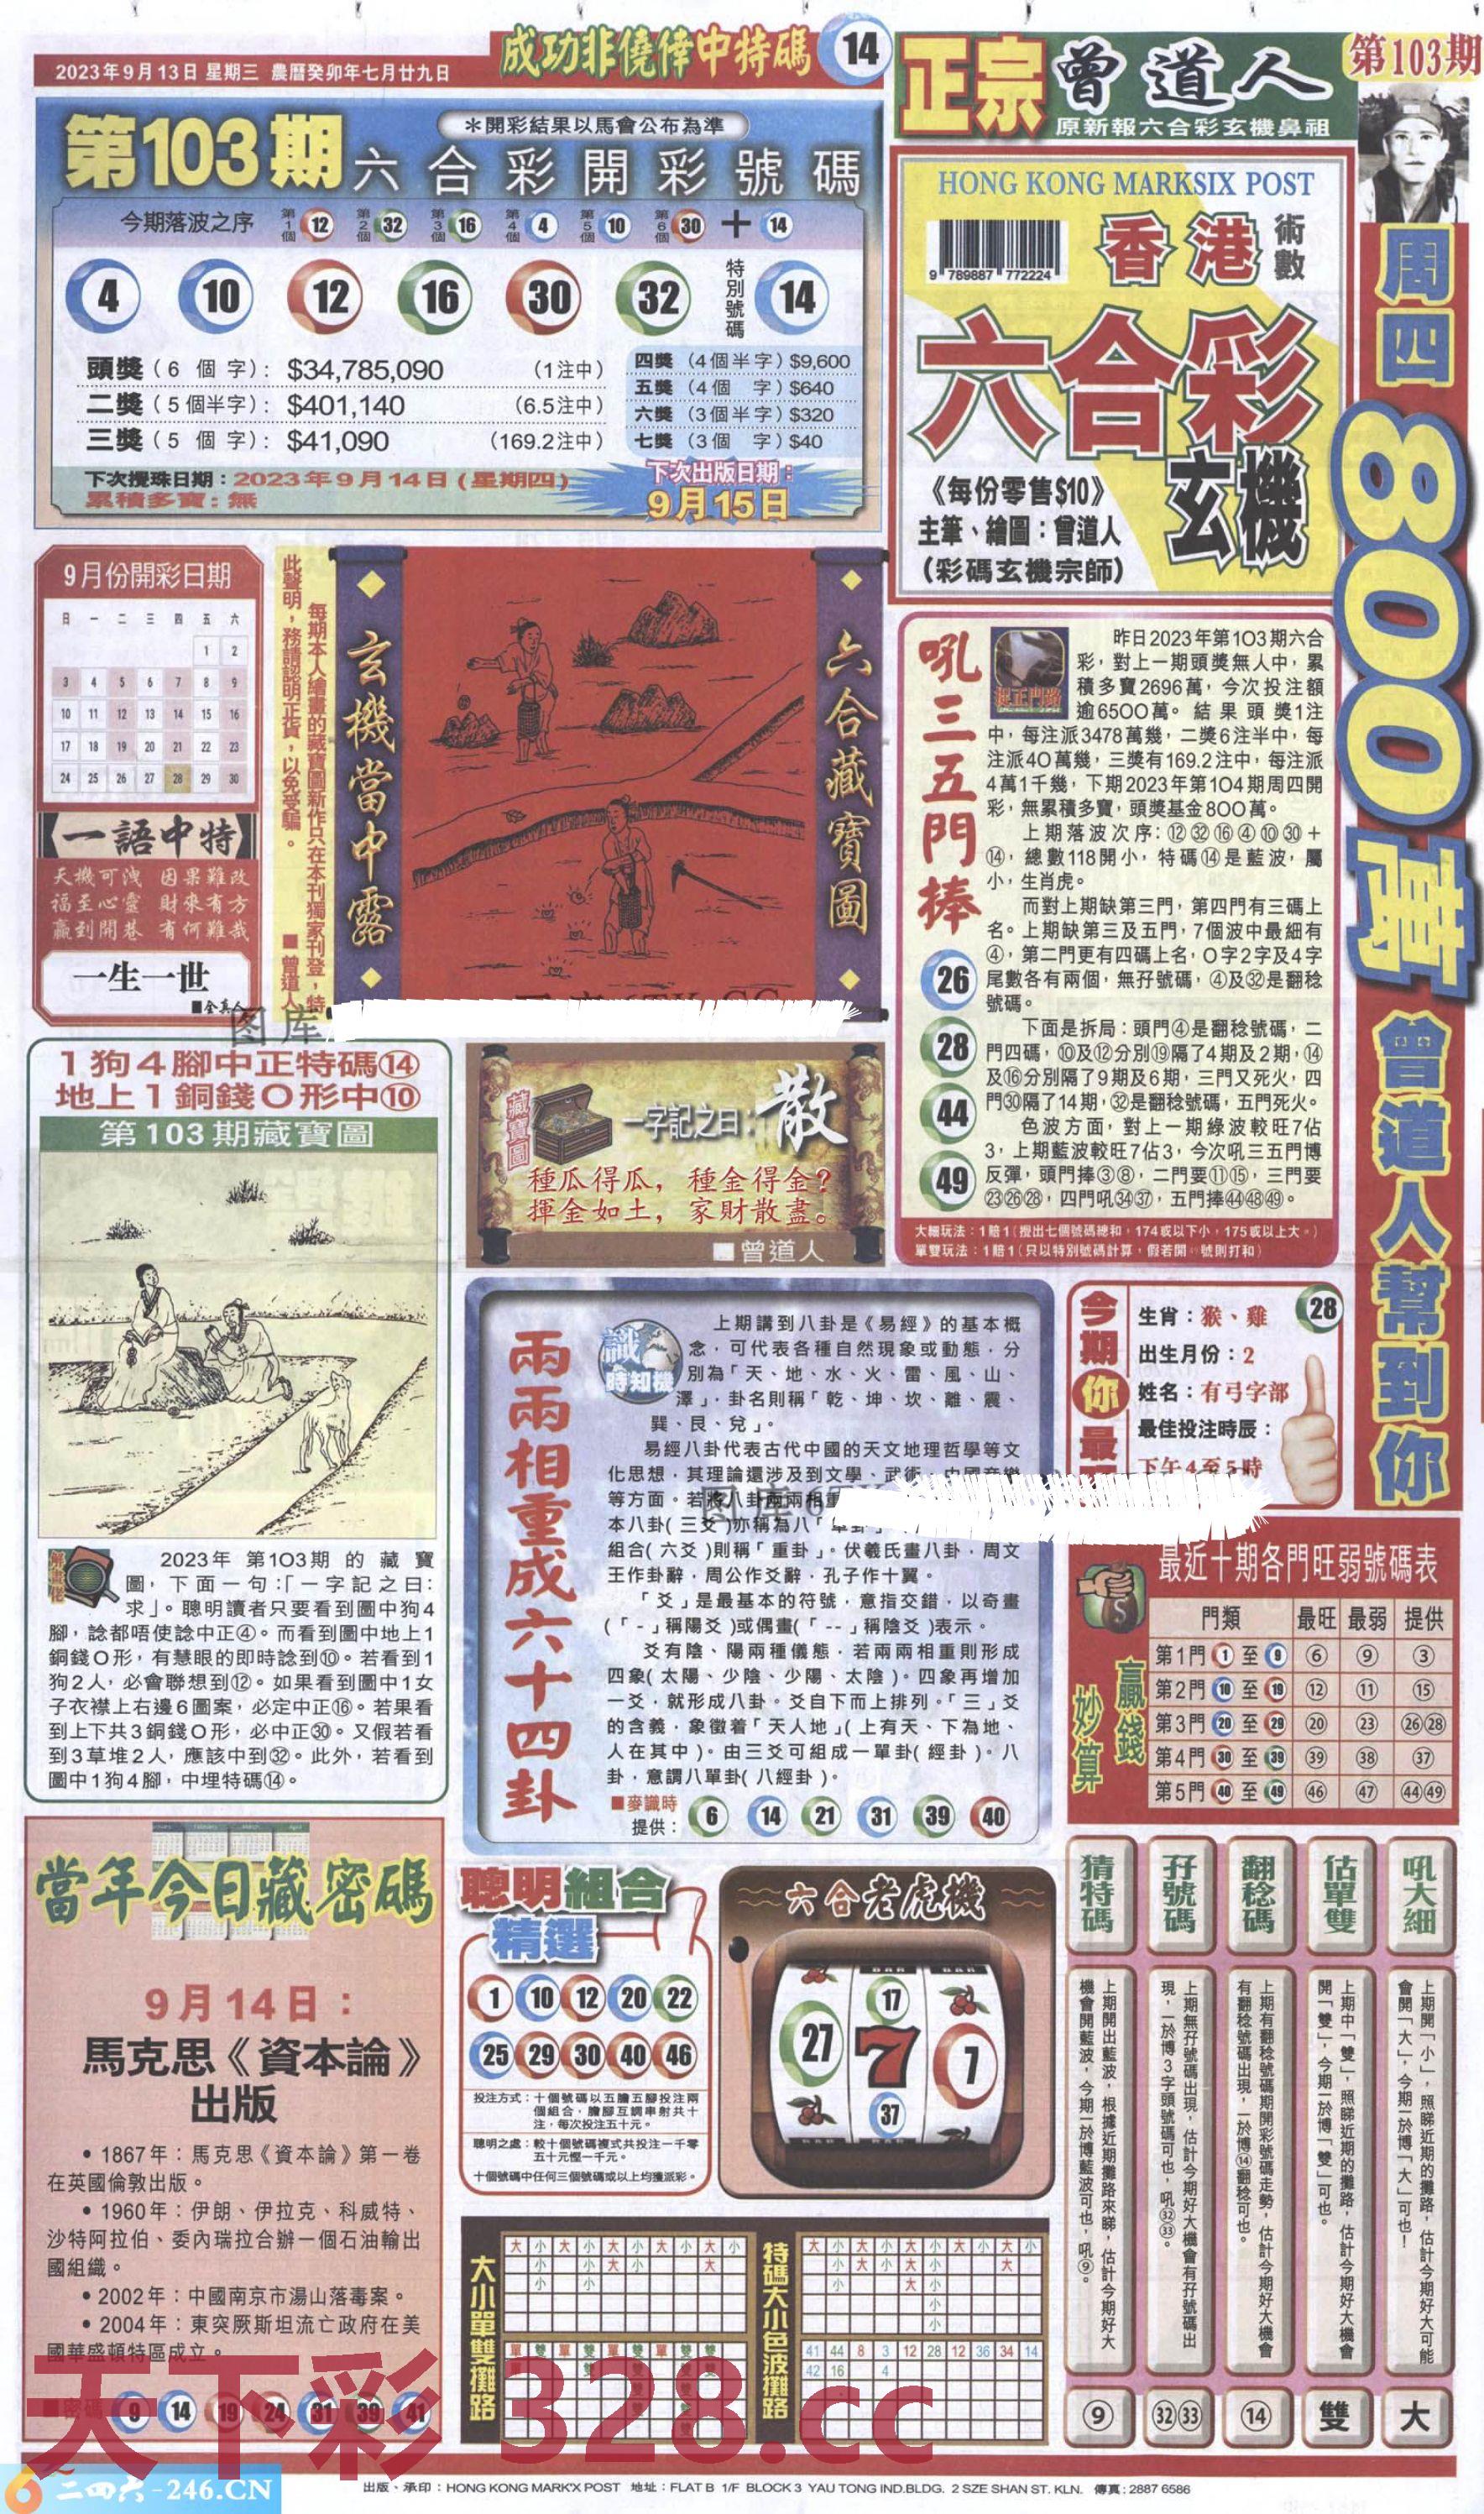 2023年9月13日 星期三 農曆癸卯年七月廿九日
成功非僥倖中特碼 14
正宗 曾道人
原新報六合彩玄機鼻祖
第103期
第103期 六合彩開彩號碼
*開彩結果以馬會公布為準
今期落波之序 第1個 12 第2個 32 第3個 16 第4個 4 第5個 10 第6個 30 + 14
4 10 12 16 30 32 特別號碼 14
頭獎(6 個 字): $34,785,090 (1注中)
二獎(5個半字): $401,140 (6.5注中)
三獎(5 個 字): $41,090 (169.2注中)
四獎(4個半字)$9,600
五獎(4個 字)$640
六獎(3個半字)$320
七獎(3個 字)$40
下次攪珠日期:2023年9月14日(星期四)
累積多寶:無
下次出版日期:
9月15日
HONG KONG MARKSIX POST
9 789887 772224
香港 術數
六合彩
玄機
《每份零售$10》
主筆、繪圖:曾道人
(彩碼玄機宗師)
周四800萬曾道人幫到你
9月份開彩日期
日 一 二 三 四 五 六
1 2
3 4 5 6 7 8 9
10 11 12 13 14 15 16
17 18 19 20 21 22 23
24 25 26 27 28 29 30
一語中特
天機可洩 因果難改
福至心靈 財來有方
贏到開巷 有何難哉
一生一世
■金真人
每期本人繪畫的藏寶圖新作只在本刊獨家刊登,特
此聲明,務請認明正貨,以免受騙。 ■曾道人
玄機當中露
六合藏寶圖
图库
吼三五門捧
捉正門路
26
28
44
49
昨日2023年第103期六合
彩,對上一期頭獎無人中,累
積多寶2696萬,今次投注額
逾6500萬。結果頭獎1注
中,每注派3478萬幾,二獎6注半中,每
注派40萬幾,三獎有169.2注中,每注派
4萬1千幾,下期2023年第104期周四開
彩,無累積多寶,頭獎基金800萬。
上期落波次序:⑫㉜⑯④⑩㉚+
⑭,總數118開小,特碼⑭是藍波,屬
小,生肖虎。
而對上期缺第三門,第四門有三碼上
名。上期缺第三及五門,7個波中最細有
④,第二門更有四碼上名,0字2字及4字
尾數各有兩個,無孖號碼,④及㉜是翻稔
號碼。
下面是拆局:頭門④是翻稔號碼,二
門四碼,⑩及⑫分別⑲隔了4期及2期,⑭
及⑯分別隔了9期及6期,三門又死火,四
門㉚隔了14期,㉜是翻稔號碼,五門死火。
色波方面,對上一期綠波較旺7佔
3,上期藍波較旺7佔3,今次吼三五門博
反彈,頭門捧③⑧,二門要⑪⑮,三門要
㉓㉖㉘,四門吼㉞㊲,五門捧㊹㊽㊾。
大細玩法:1賠1(攪出七個號碼總和,174或以下小,175或以上大。)
單雙玩法:1賠1(只以特別號碼計算,假若開 號則打和)
1狗4腳中正特碼⑭
地上1銅錢O形中⑩
第103期藏寶圖
2023年 第103期 的 藏 寶
圖,下面一句:「一字記之曰:
求」。聰明讀者只要看到圖中狗4
腳,諗都唔使諗中正④。而看到圖中地上1
銅錢O形,有慧眼的即時諗到⑩。若看到1
狗2人,必會聯想到⑫。如果看到圖中1女
子衣襟上右邊6圖案,必定中正⑯。若果看
到上下共3銅錢O形,必中正㉚。又假若看
到3草堆2人,應該中到㉜。此外,若看到
圖中1狗4腳,中埋特碼⑭。
藏寶圖
一字記之曰:散
種瓜得瓜,種金得金?
揮金如土,家財散盡。
■曾道人
兩兩相重成六十四卦
識時知機
上期講到八卦是《易經》的基本概
念,可代表各種自然現象或動態,分
別為「天、地、水、火、雷、風、山、
澤」,卦名則稱「乾、坤、坎、離、震、
巽、艮、兌」。
易經八卦代表古代中國的天文地理哲學等文
化思想,其理論還涉及到文學、武術、中國音樂
等方面。若將八卦兩兩相重
本八卦(三爻)亦稱為八「單卦」
組合(六爻)則稱「重卦」。伏羲氏畫八卦,周文
王作卦辭,周公作爻辭,孔子作十翼。
「爻」是最基本的符號,意指交錯,以奇畫
(「-」稱陽爻)或偶畫(「--」稱陰爻)表示。
爻有陰、陽兩種儀態,若兩兩相重則形成
四象(太陽、少陰、少陽、太陰)。四象再增加
一爻,就形成八卦。爻自下而上排列。「三」爻
的含義,象徵着「天人地」(上有天、下為地、
人在其中)。由三爻可組成一單卦(經卦)。八
卦,意謂八單卦(八經卦)。
■麥識時
提供: 6 14 21 31 39 40
图库
今期你最
生肖:猴、雞 28
出生月份:2
姓名:有弓字部
最佳投注時辰:
下午4至5時
最近十期各門旺弱號碼表
贏錢妙算
門類 最旺 最弱 提供
第1門 1 至 9 ⑥ ⑨ ③
第2門 10 至 19 ⑫ ⑪ ⑮
第3門 20 至 29 ⑳ ㉓ ㉖㉘
第4門 30 至 39 ㊴ ㊳ ㊲
第5門 40 至 49 ㊻ ㊼ ㊹㊾
當年今日藏密碼
9月14日:
馬克思《資本論》
出版
•1867年:馬克思《資本論》第一卷
在英國倫敦出版。
•1960年:伊朗、伊拉克、科威特、
沙特阿拉伯、委內瑞拉合辦一個石油輸出
國組織。
•2002年:中國南京市湯山落毒案。
•2004年:東突厥斯坦流亡政府在美
國華盛頓特區成立。
■密碼 9 14 19 24 31 39 41
聰明組合
精選
1 10 12 20 22
25 29 30 40 46
投注方式:十個號碼以五膽五腳投注兩
個組合,膽腳互調串射共十
注,每次投注五十元。
聰明之處:較十個號碼複式共投注一千零
五十元慳一千元。
十個號碼中任何三個號碼或以上均獲派彩。
六合老虎機
BAR BAR
17
27 7 7
37
大小單雙攤路
大 小 大 小 大 小 大 小 大 小
小 小 大 小 大
小 小
單 雙 單 雙 單 雙 單 雙 雙
特碼大小色波攤路
大 小 大 小 大 小 大 小 大 小
小 大 小 大 小 大
小 大 小
小
小
41 44 8 3 12 28 12 36 34 14
42 16 4
吼大細
上期開「小」,照睇近期的攤路,估計今期好大可能
會開「大」,今期一於博「大」可也!
大
估單雙
上期中「雙」,照睇近期的攤路,估計今期好大機會
開「雙」,今期一於博「雙」可也。
雙
翻稔碼
上期有翻稔號碼期開彩號碼走勢,估計今期好大機會
有翻稔號碼出現,一於博⑭翻稔可也。
⑭
孖號碼
上期無孖號碼出現,估計今期好大機會有孖號碼出
現,一於博3字頭號碼可也,吼㉜㉝。
㉜㉝
猜特碼
上期開出藍波,根據近期攤路來睇,估計今期好大
機會開藍波,今期一於博藍波可也,吼⑨。
⑨
天下彩 328.cc
6 二四六-246.CN
出版、承印:HONG KONG MARK'X POST 地址:FLAT B 1/F BLOCK 3 YAU TONG IND.BLDG. 2 SZE SHAN ST. KLN. 傳真:2887 6586